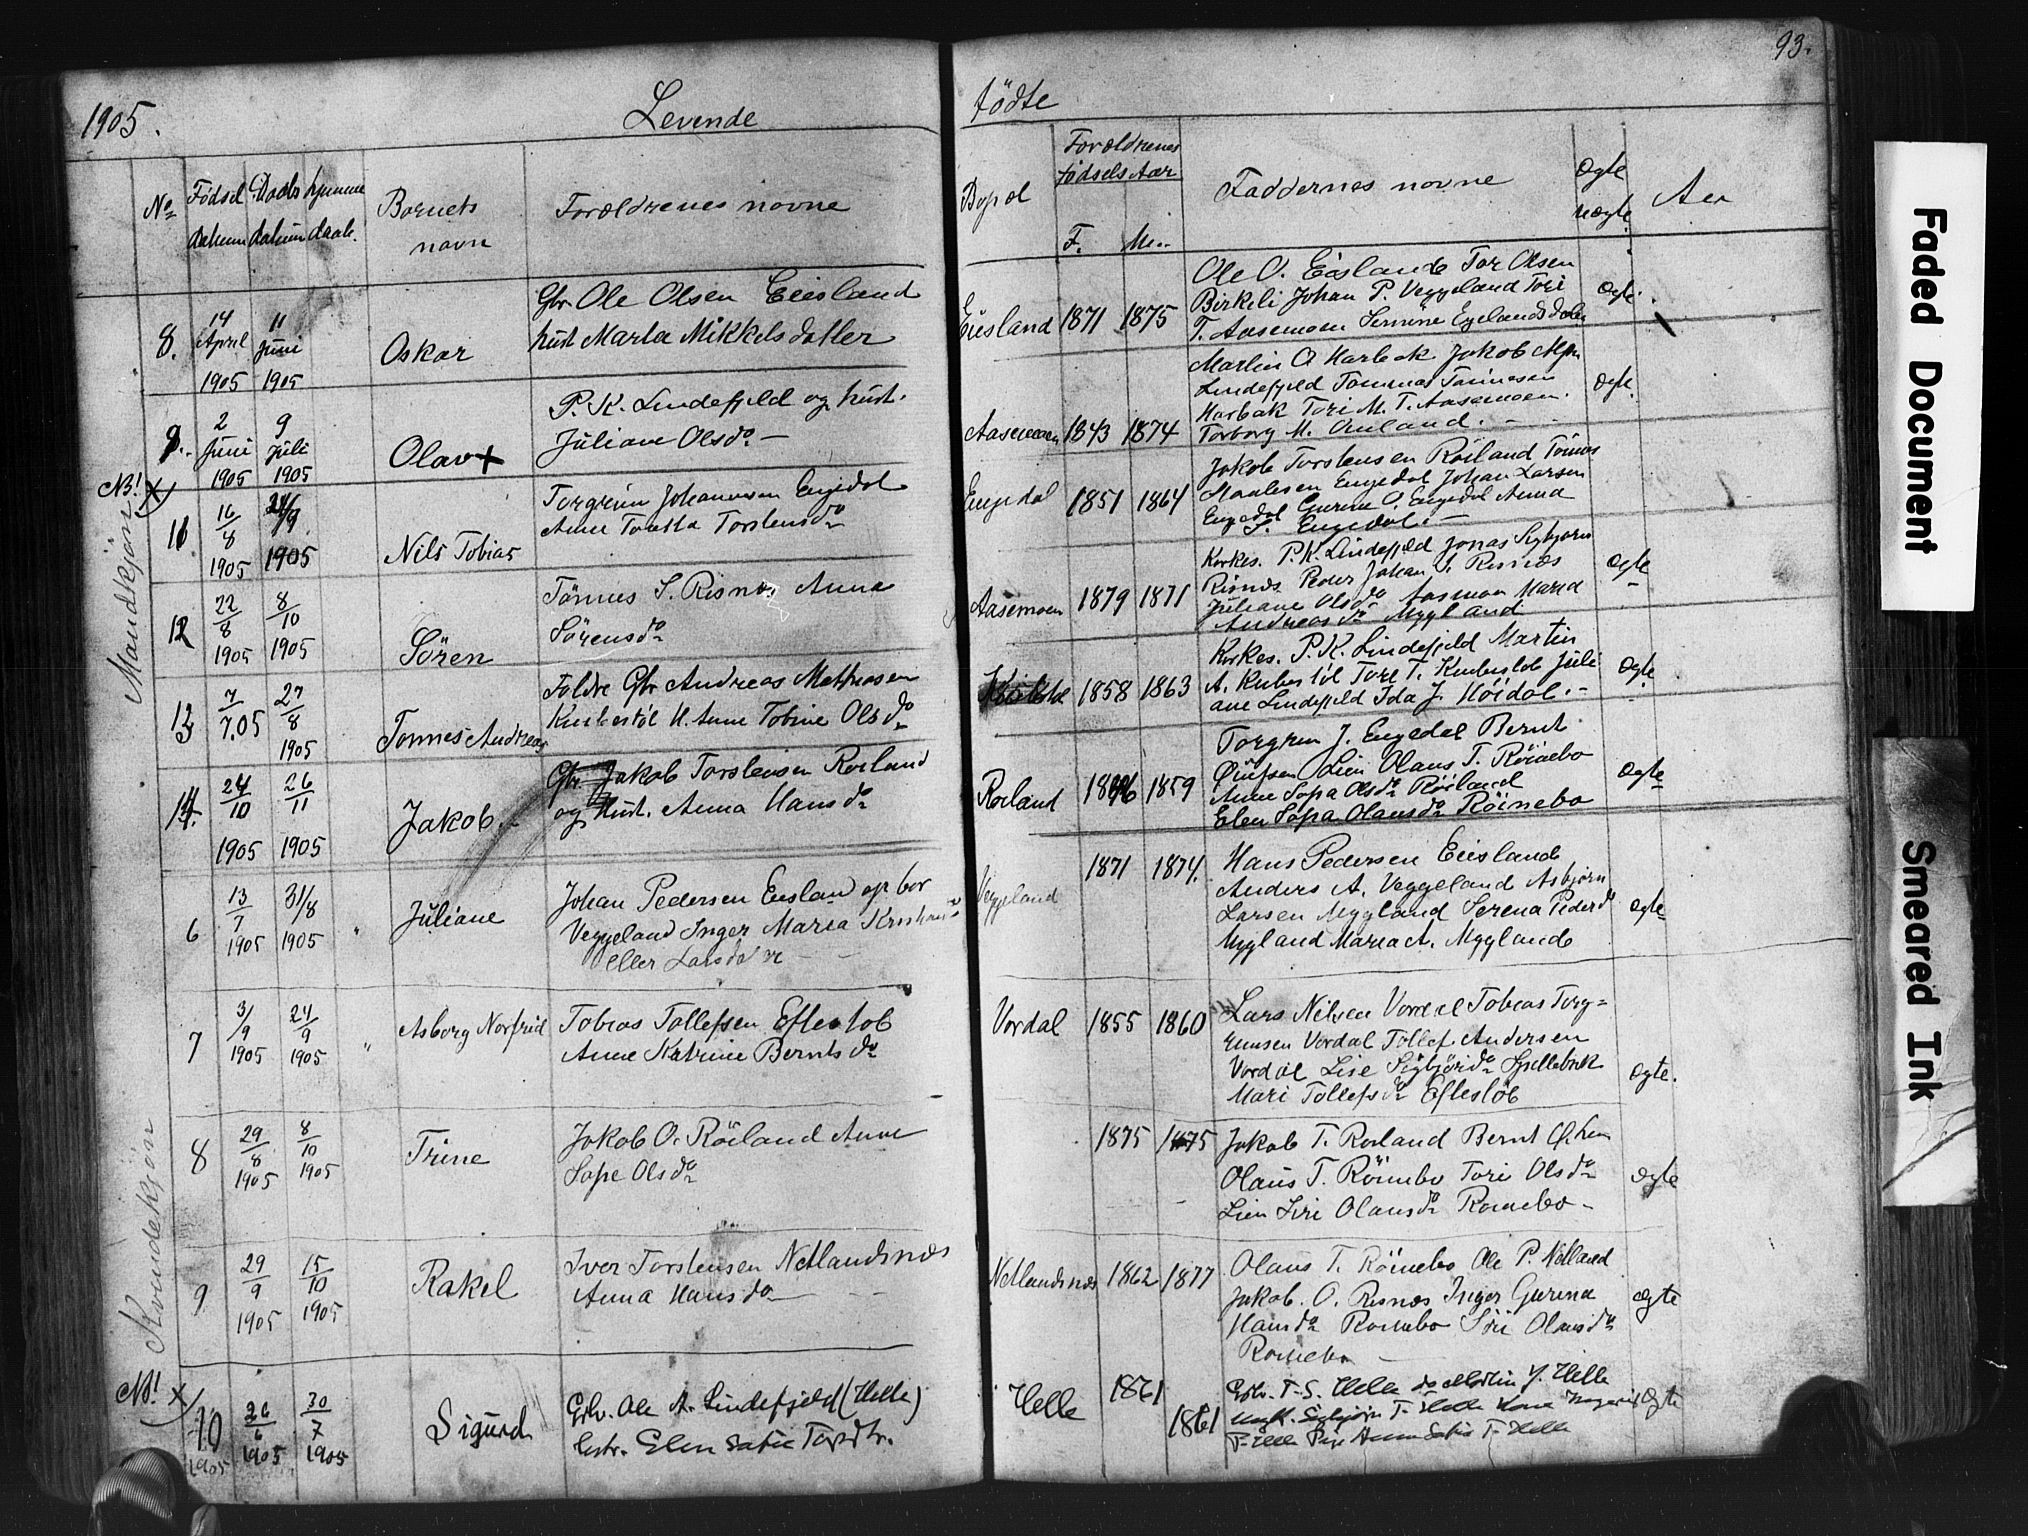 93.
1905.
Levende
födte
No
Födsel
datum
Daabs
datum
hjemme
daab.
Barnets
navn
Forældrenes navne
Bopæl
Forældrenes
födsels Aar
F.
M.
Faddernes navne
Ægte
uægte
Mandkjön
8.
14
April
1905
11
Juni
1905
Oskar
Gbr. Ole Olsen Eiesland
hust Marta Mikkelsdatter
Eiesland
1871
1875
Ole O. Eiesland Tor Olsen
Birkeli Johan P. Veggeland Tori
T. Aasemoen
Ægte
9.
2
Juni
1905
9
Juli
1905
Olav +
P. K. Lindefjeld og hust.
Juliane Olsda —
Aasemoen
1843
1874
Martin O Harbak Jakob
Lindefjeld Tommas Tönnesen
Harbak Tori M. T. Aasemoen.
Torborg M. Omland.
Ægte.
NB! X)
11
16
8
1905
24/9
1905
Nils Tobias
Torgrim Johannesen Engedal
Anne Toretta Torstensda
Engedal
1851
1864
Jakob Torstensen Röiland Tönnes
Staalesen Engedal Johan Larsen
Engedal Gurine O. Engedal Anna
T. Engedal. —
12
22
8
1905
8
10
1905
Sören
Tönnes S. Risnes Anna
Sörensda
Aasemoen
1879
1871
Kirkes. P. K. Lindefjeld Jonas Sigbjörn
Risnes Peder Johan S. Risnæs
Juliane Olsda Aasmoen Maria
Andreasda Mygland
Ægte
13
7
7.05
27
8
1905
Tonnes Andreas
Foldre Gbr Andreas Mathiasen
Kubestöl H. Anne Tobine Olsda
1858
1863
Kirkes. P. K. Lindefjeld Martin
A. Kubestöl Tore T. Juli
ane Lindefjeld Ida J. Höidal. —
Ægte
14.
24
10
1905
26
11
1905
Jakob. —
Gbr. Jakob Torstensen Roiland
og Hust. Anna Hansda
Roiland
1859
Torgrim J. Engedal Bernt
Lien Olaus T. Röinebo
Anne Sopa Olsda Röiland
Elen Sopa Olausda Röinebo
Ægte
Kvindekjön
6
13
7
1905
31/8
1905
"
Juliane
Johan Pedersen Eiesland op bor
Veggeland Inger Maria
eller Larsdatter —
Veggeland
1871
1874.
Hans Pedersen Eiesland
Anders A. Veggeland Asbjörn
Larsen Mygland Serena Pedersda
Mygland Maria A. Mygland
Ægte
7
3/9
1905
24
9
1905
"
Asborg Norfrid
Tobias Tollefsen Eftestöb
Anne Katrine Berntsda
Vordal
1855
1860
Lars Nilsen Vordal Tobias Torg=
rimsen Vordal Tollef Andersen
Vordal Lise
Mari Tollefsda Eftestöb
Ægte.
8
29
8
1905
8
10
1905
Trine
Jakob O. Röiland Anne
Sope Olsda
1875
1875
Jakob T. Roiland Bernt Ö. Lien
Olaus T. Röinebo Tori Olsda
Lien Siri Olausda Roinebo —
Ægte
9
29
9
1905
15
10
1905
Rakel
Iver Torstensen Netlandsnæs
Anna Hansda — —
Netlandsnæs
1862
1877
Olaus T. Röinebo Ole P. Netland
Jakob. O. Risnes Inger Gurina
Hansda Roinebo Siri Olausda
Roinebo —
Ægte
NB! X)
10
1905
26
6
1905
30
7
1905
Sigurd
Grbr. Ole A. Lindefjeld (Helle)
hstr. Elen Sofie Torsdtr.
Helle
1861
1861
Grbr. T. S. Helle do Martin J. Helle
Ungk. Sigbjörn T. Helle Kone
T. Helle Pige Anne Sofie T. Helle
Ægte
Faded Document
Smeared Ink